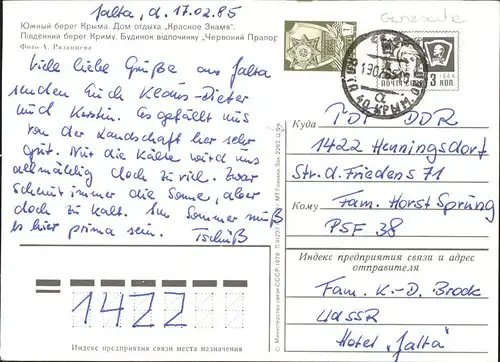 Jalta, d. 17.02.85
Южный берег Крыма. Дом отдыха „Красное Знамя".
Південний берег Криму. Будинок відпочинку „Червоний Прапор
Фото А. Рязанцева
Viele liebe Grüße aus Jalta
senden Euch Klaus-Dieter
und Kerstin. Es gefällt uns
von der Landschaft her sehr
gut. Nur die Kälte wird uns
allmählig doch zu viel. Zwar
scheint immer die Sonne, aber
doch zu kalt. Im Sommer muß
es hier prima sein. Tschüß
1422
Индекс предприятия связи места назначения
© Министерство связи СССР, 1978
МТ Гознака. Зак.
ПОЧТА
3 КОП.
1966
КРЫМ. ОБЛ.
Куда
PDF DDR
1422 Henningsdorf
Str. d. Friedens 71
Кому
Fam. Horst Sprung
PSF 38
Индекс предприятия связи и адрес
отправителя
Fam. K.-D. Brock
UdSSR
Hotel „Jalta"